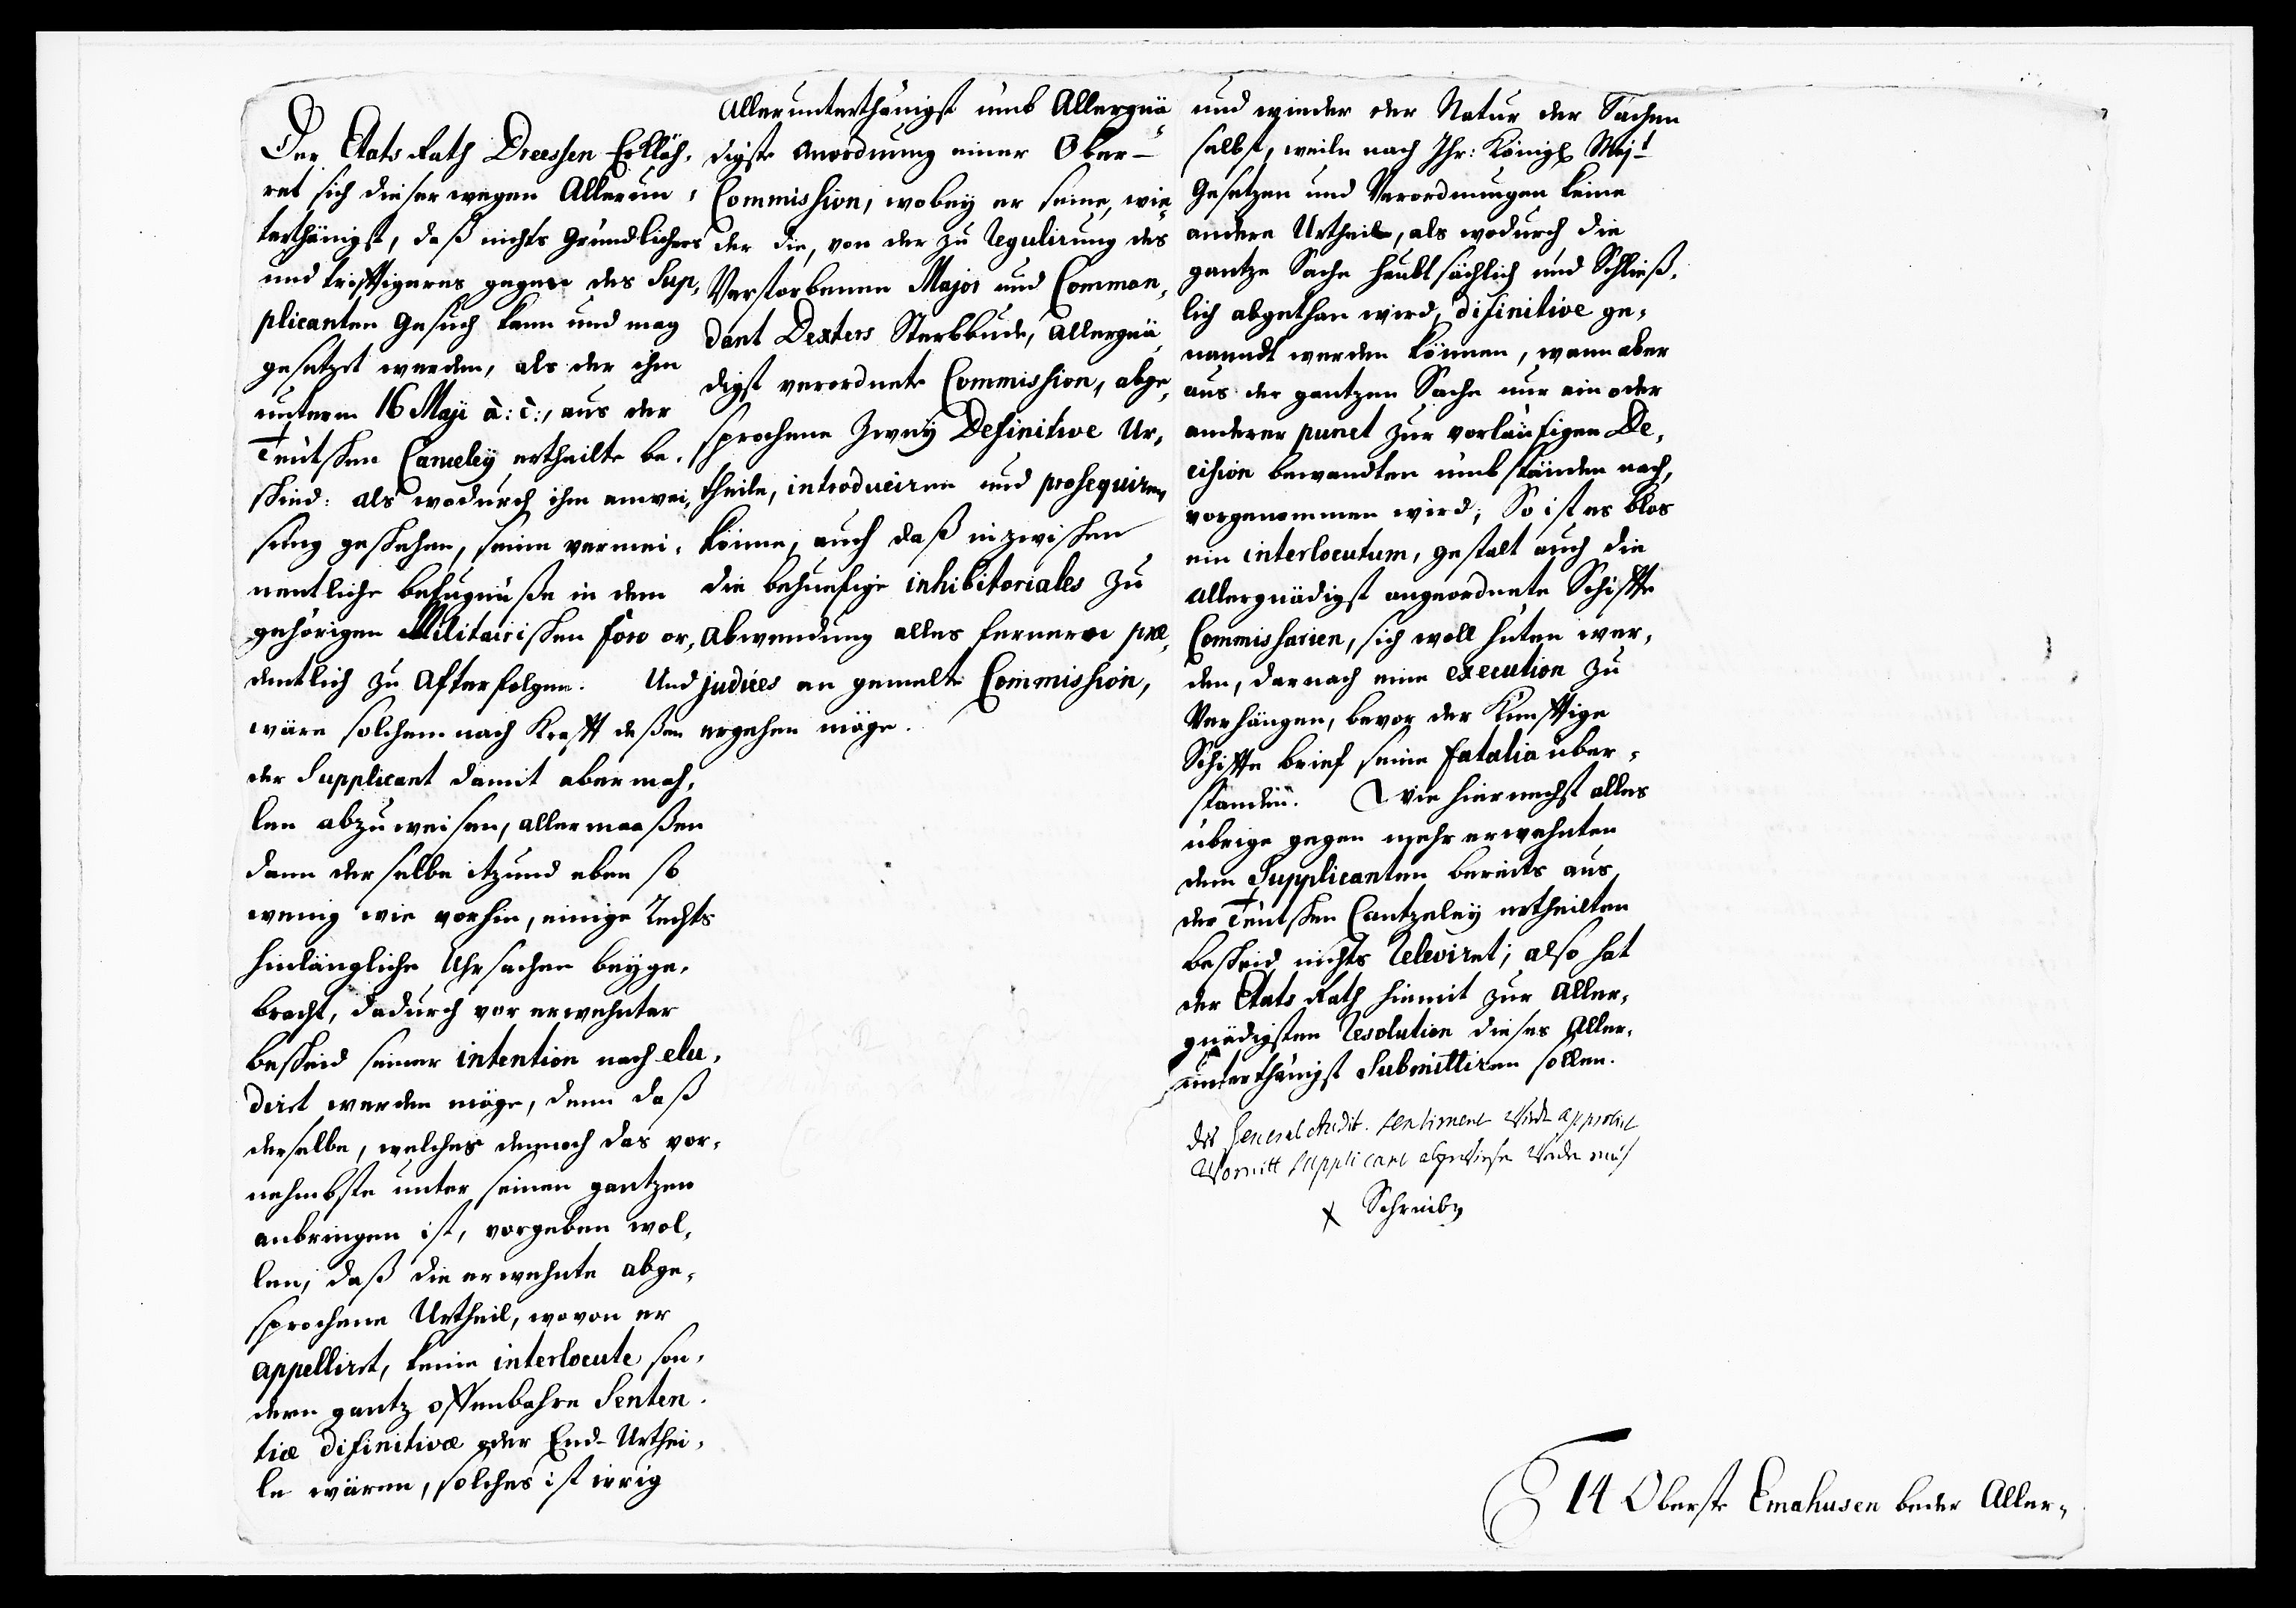 Der Etats Rath Dreessen Erkläh,
ret sich dieser wegen Allerun,
terthänigst, daß nichts Gründlichers
und trifftigeres gegen des Sup,
plicanten Gesuch kann und mag
gesetzet werden, als der ihm
unterm 16 Maji a: c:, aus der
Teütschen Canceley ertheilte be,
scheid: als wodurch ihm anwei,
sung geschehen, seine vermei,
nentliche befugnüße in dem
gehörigen Militairischen foro or,
dentlich zu Afterfolgen. Und
wäre solchem nach Krafft deßen
der Supplicant damit abermah,
len abzuweisen, allermaaßen
dann derselbe itzund eben so
wenig wie vorhin, einige Rechts
hinlängliche Uhrsachen beyge,
bracht, dadurch vor erwehnter
bescheid seiner intention nach elu,
dirt werden möge, denn daß
derselbe, welches dennoch das vor,
nehmbste unter seinen gantzen
anbringen ist, vorgeben wol,
len, daß die erwehnte abge,
sprochene Urtheil, wovon er
appellirt, keine interlocute son,
dern gantz offenbahre Senten,
tiæ difinitivæ oder End-Urthei,
le wären, solches ist irrig
Allerunterthänigst umb Allergnä
digste anordnung einer Ober-
Commission, wobey er seine, wie,
der die, von der zu Regulirung des
Verstorbenen Major und Comman,
dant Dexters Sterbbude, allergnä,
digst verordnete Commission, abge,
sprochene Zwey Definitive Ur,
theile, introduciren und prosequiren
könne, auch daß inzwischen
die behuefige inhibitoriales zu
Abwendung alles fernern præ,
judices an gemelte Commission,
ergehen möge.
und wieder der Natur der Sachen
selbst, weiln nach Ihr: Königl Majt
Gesetzen und Verordnungen keine
andere Urtheile, als wodurch die
gantze Sache haubtsächlich und Schließ,
lich abgethan wird, difinitive ge,
nanndt werden können, wann aber
aus der gantzen Sache nur ein oder
anderer punct zur vorläufigen De,
cision bewandten umbständen nach,
vorgenommen wird, So ist es blos
ein interlocutum, gestalt auch die
allergnädigst angeordnete Schiffts
Commissarien, sich woll hüten wer,
den, darnach eine execution zu
Verhängen, bevor der Künfftige
Schiffts brief seine fatalia über,
standen. Wie hiernechst alles
übrige gegen mehr erwehnten
dem Supplicanten bereits aus
der Teütschen Cantzeley ertheilten
bescheid nichts Releviret; also hat
der Etats Rath hiemit zur Aller,
gnädigsten Resolution dieses Aller,
unterthänigst Submittiren sollen.
des General Audit. sentiment wirdt approbirt
Wormitt supplicant abgewiesen werden muß
x Schreiben
14 Oberste Emahusen beder Aller,